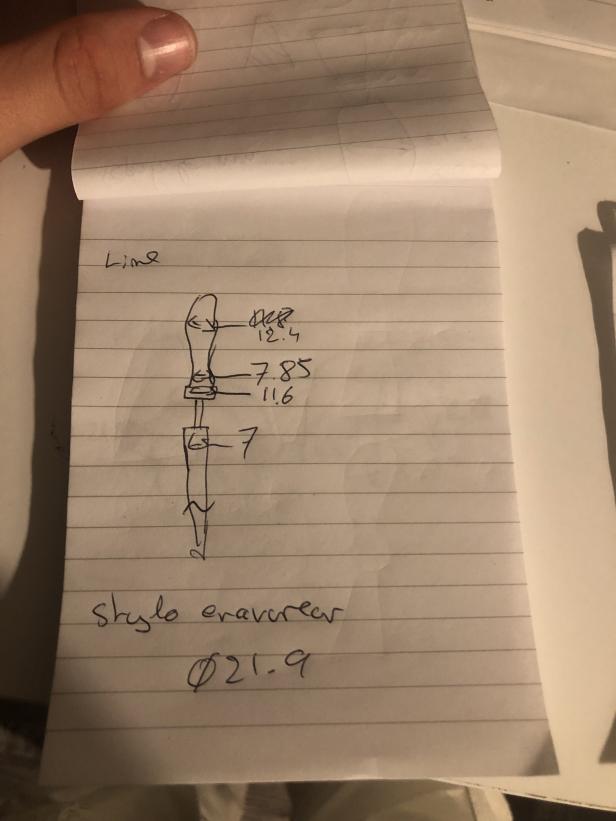 Lime
12.4
7.85
11.6
7
Stylo graveur
Ø21.9